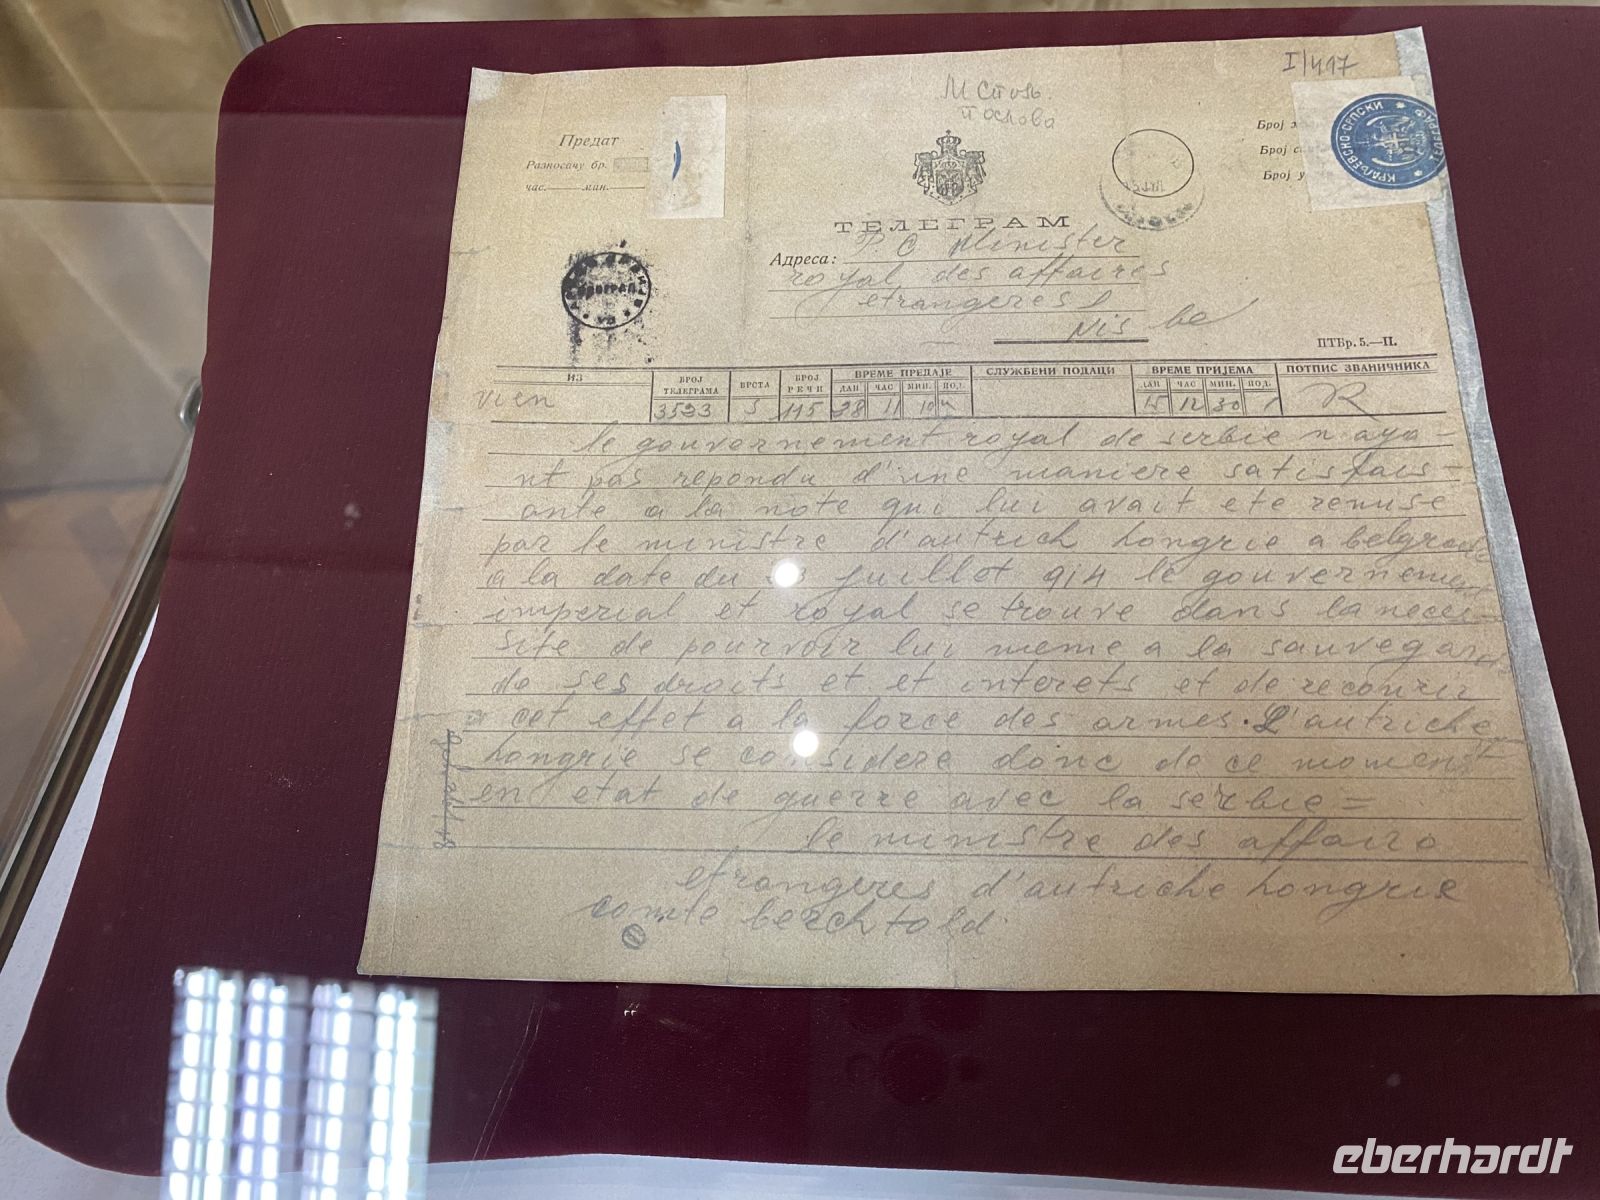 I/417
М Стол.
послова
Предат
Разносачу бр.
час. мин.
Број
Број
Број у
КРАЉЕВСКО-СРПСКИ
ТЕЛЕГРАМ
Адреса: P. C Minister
royal des affaires
etrangeres
Nis be
БЕОГРАД
ПТБр. 5.—II.
ИЗ БРОЈ ТЕЛЕГРАМА ВРСТА БРОЈ РЕЧИ ВРЕМЕ ПРЕДАЈЕ СЛУЖБЕНИ ПОДАЦИ ВРЕМЕ ПРИЈЕМА ПОТПИС ЗВАНИЧНИКА
ДАН ЧАС МИН. ПОД. ДАН ЧАС МИН. ПОД.
vien 3523 S 115 28 11 10 15 12 30 R
le gouvernement royal de serbie n aya-
nt pas repondu d'une maniere satisfais-
ante a la note qui lui avait ete remise
par le ministre d'autrich hongrie a belgrade
a la date du juillot 914 le gouvernement
imperial et royal se trouve dans la necei-
site de pourvoir lui meme a la sauvegarde
de ses droits et et interets et de recourir
a cet effet a la force des armes. L'autriche
hongrie se considere donc de ce moment
en etat de guerre avec la serbie =
le ministre des affaire
etrangeres d'autriche hongrie
comte berchtold
eberhardt